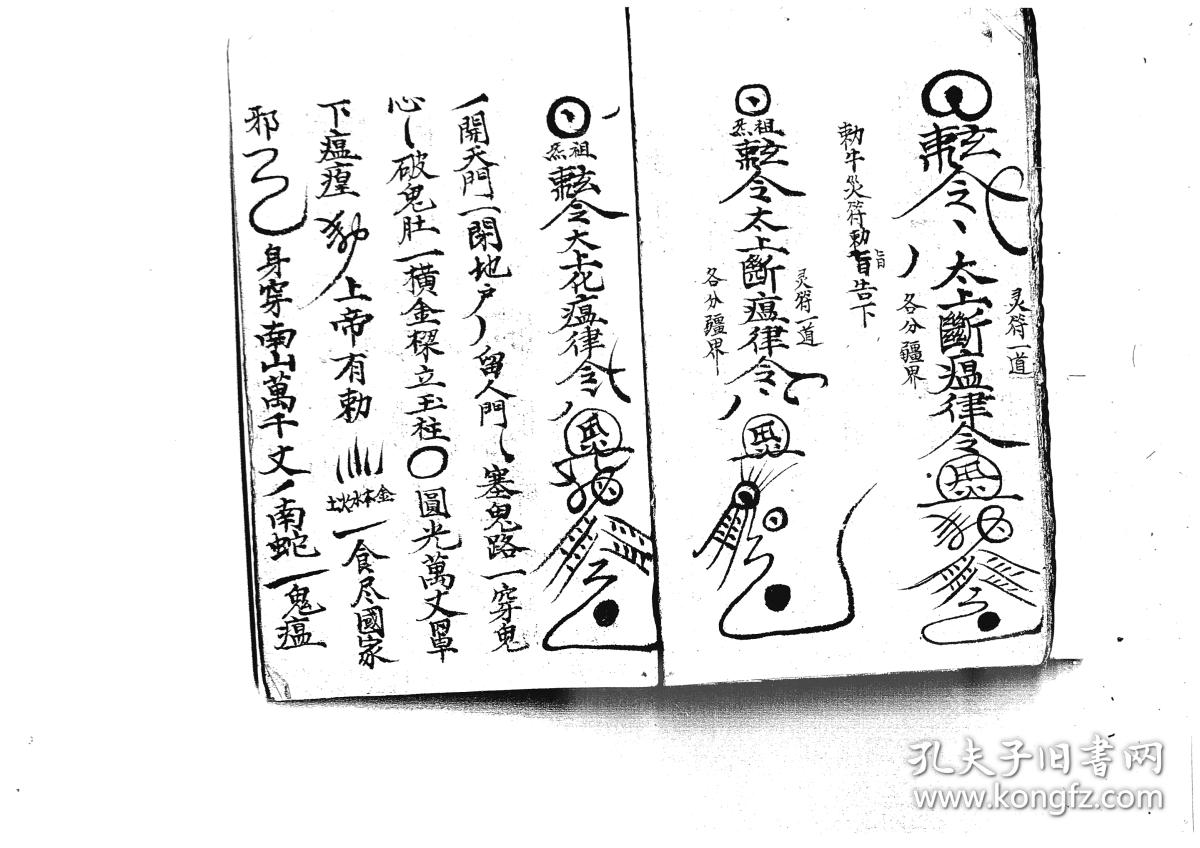 令 太上斷瘟律令
灵符一道
各分疆界
勅牛災符勅旨告下
旨
祖
令太上斷瘟律令
灵符一道
各分疆界
祖
令太上化瘟律令
一開天門一閉地户丿留人門 塞鬼路一穿鬼
心 破鬼肚一橫金樑立玉柱〇圓光萬丈罩
下瘟瘟 上帝有勅
金木水火土
一食尽國家
邪 身穿南山萬千丈丿南蛇一鬼瘟
孔夫子旧书网
www.kongfz.com